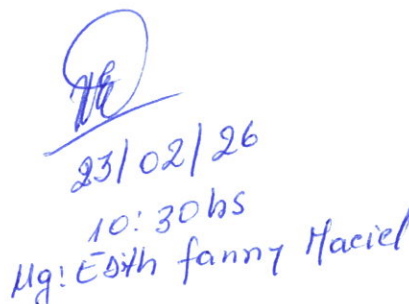 23/02/26
10:30hs
Mg: Edith fanny Maciel